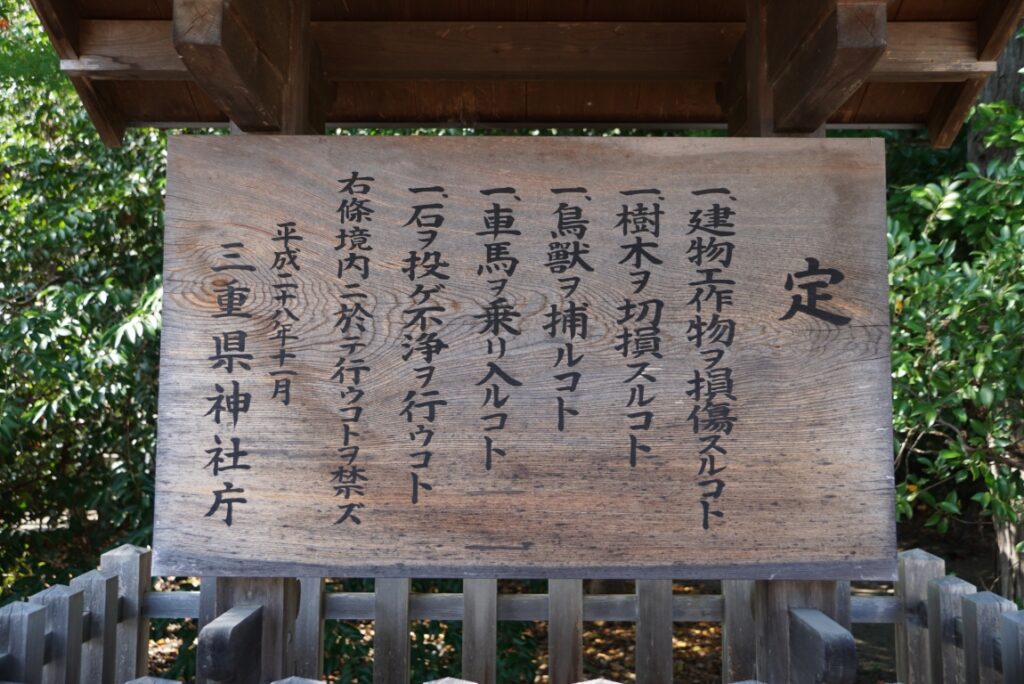 定
一、建物工作物ヲ損傷スルコト
一、樹木ヲ切損スルコト
一、鳥獣ヲ捕ルコト
一、車馬ヲ乗リ入ルコト
一、石ヲ投ゲ不浄ヲ行ウコト
右條境内ニ於テ行ウコトヲ禁ズ
平成二十八年十一月
三重県神社庁